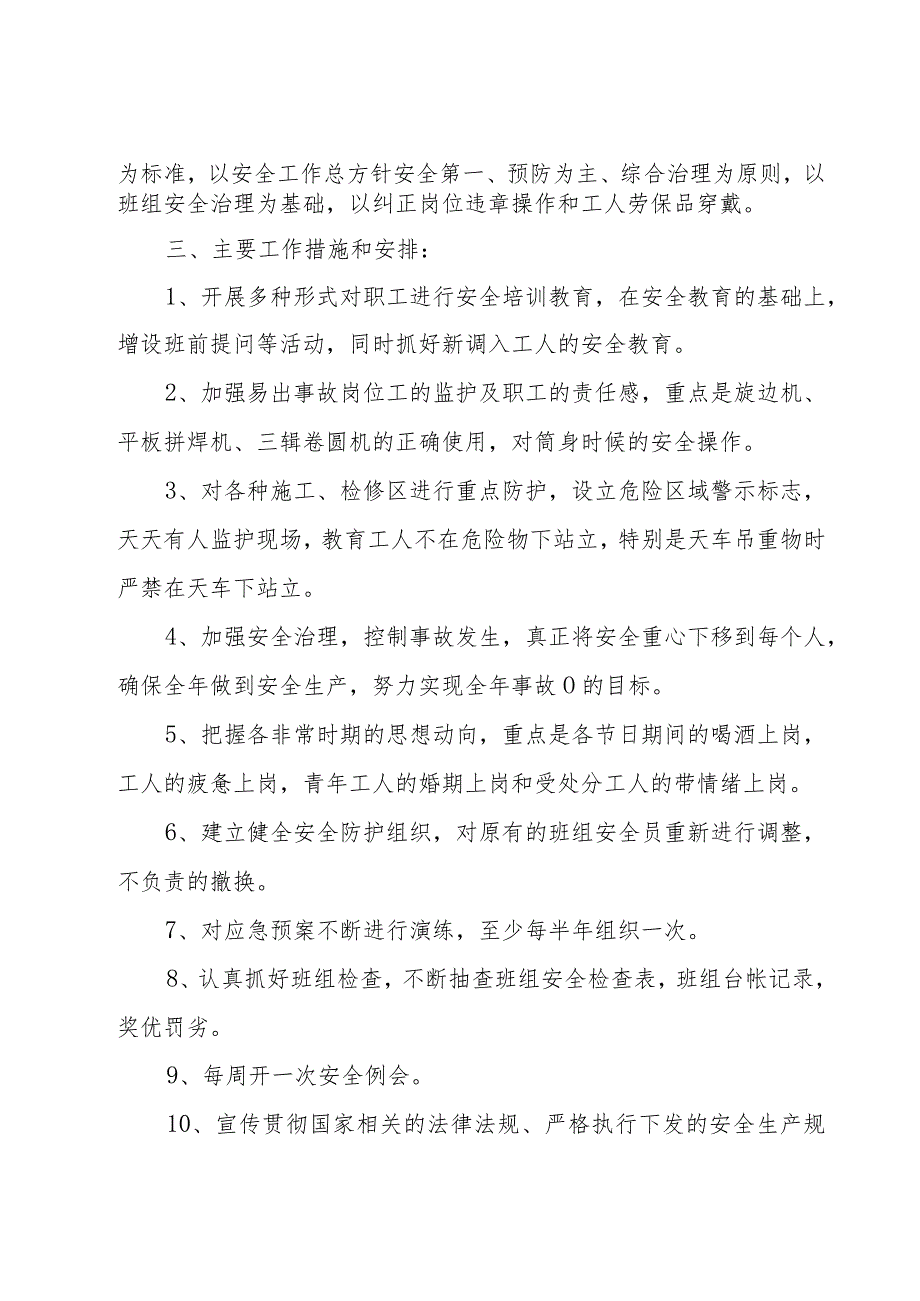 为标准，以安全工作总方针安全第一、预防为主、综合治理为原则，以
班组安全治理为基础，以纠正岗位违章操作和工人劳保品穿戴。
三、主要工作措施和安排：
1、开展多种形式对职工进行安全培训教育，在安全教育的基础上，
增设班前提问等活动，同时抓好新调入工人的安全教育。
2、加强易出事故岗位工的监护及职工的责任感，重点是旋边机、
平板拼焊机、三辑卷圆机的正确使用，对筒身时候的安全操作。
3、对各种施工、检修区进行重点防护，设立危险区域警示标志，
天天有人监护现场，教育工人不在危险物下站立，特别是天车吊重物时
严禁在天车下站立。
4、加强安全治理，控制事故发生，真正将安全重心下移到每个人，
确保全年做到安全生产，努力实现全年事故 0 的目标。
5、把握各非常时期的思想动向，重点是各节日期间的喝酒上岗，
工人的疲惫上岗，青年工人的婚期上岗和受处分工人的带情绪上岗。
6、建立健全安全防护组织，对原有的班组安全员重新进行调整，
不负责的撤换。
7、对应急预案不断进行演练，至少每半年组织一次。
8、认真抓好班组检查，不断抽查班组安全检查表，班组台帐记录，
奖优罚劣。
9、每周开一次安全例会。
10、宣传贯彻国家相关的法律法规、严格执行下发的安全生产规